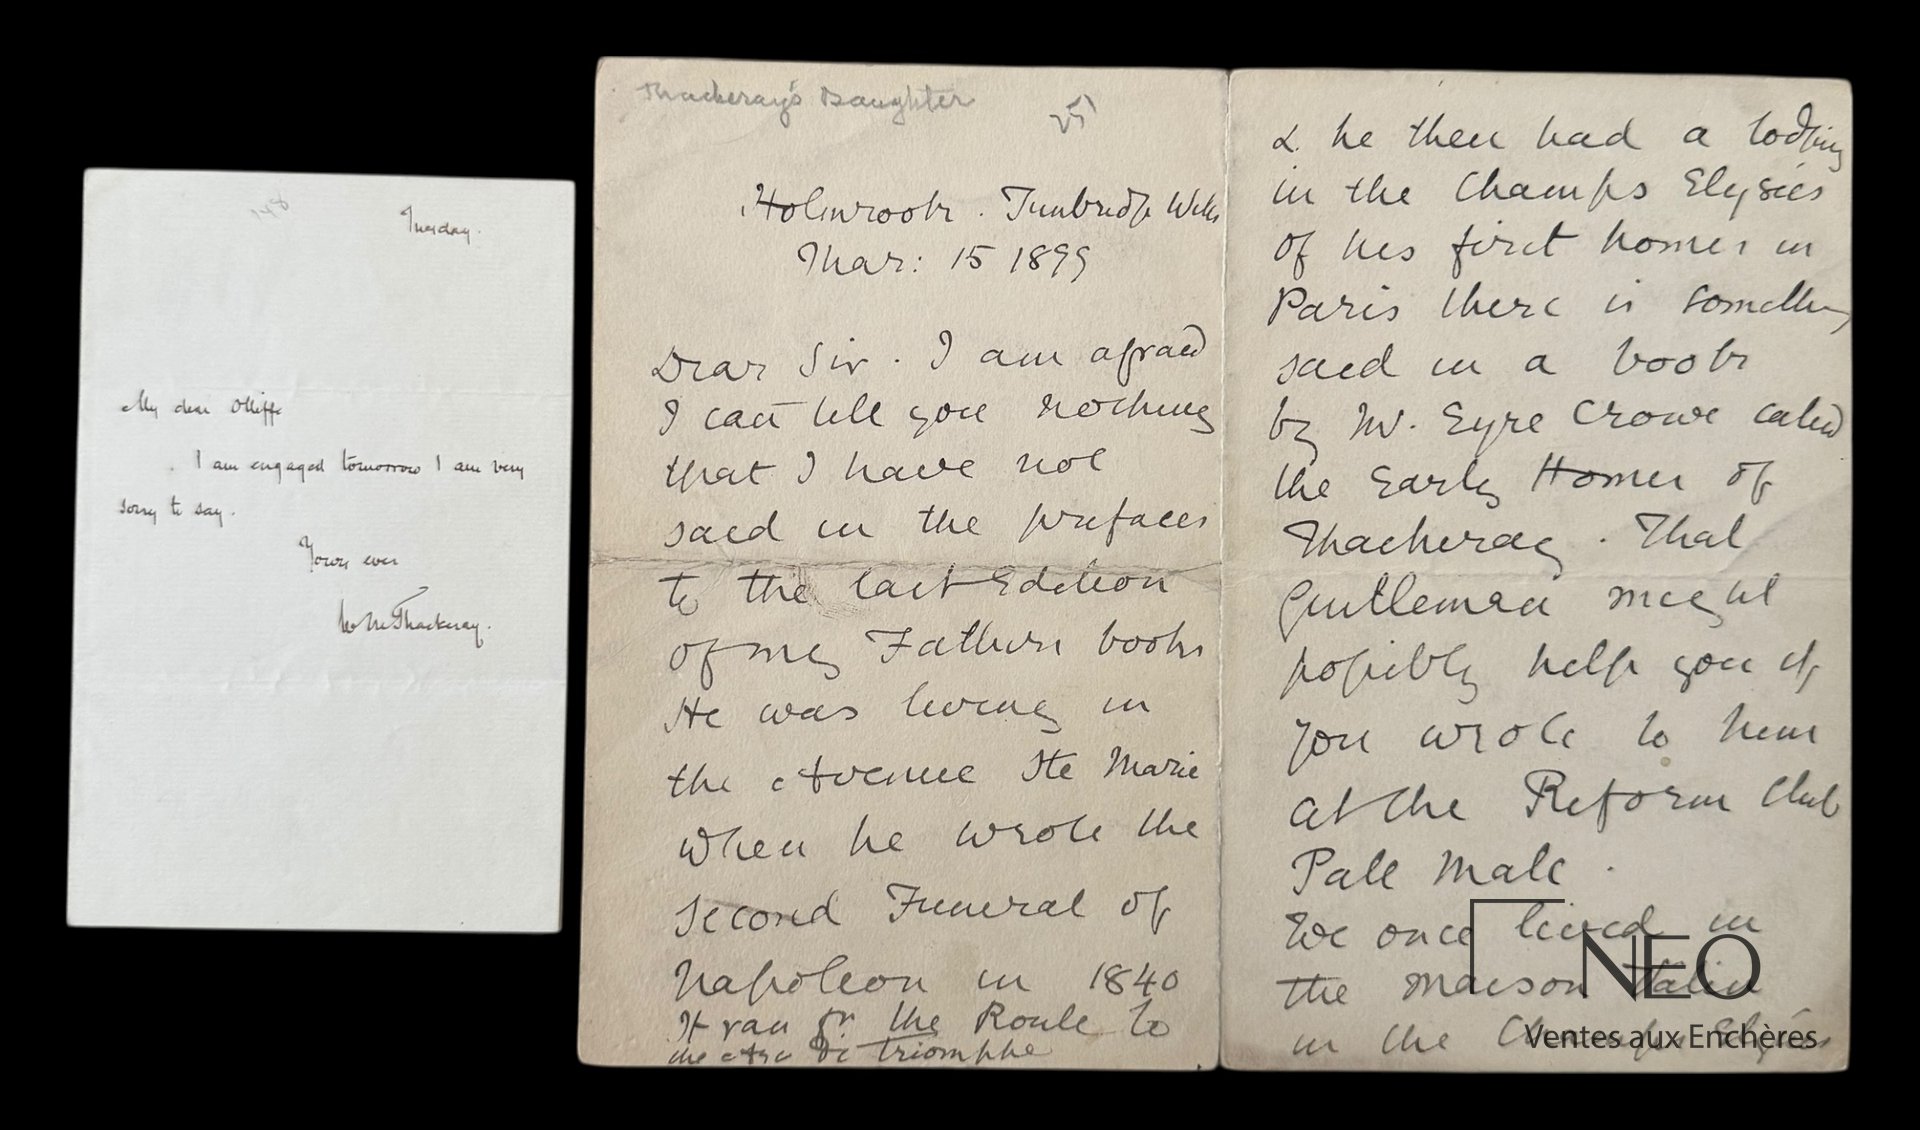 148
Tuesday.
My dear Olliffe
I am engaged tomorrow I am very
sorry to say.
Yours ever
W M Thackeray.
Thackeray's Daughter
Holmrook. Tunbridge Wells
Mar: 15 1899
Dear Sir. I am afraid
I can tell you nothing
that I have not
said in the prefaces
to the last Edition
of my Fathers books
He was living in
the Avenue Ste Marie
when he wrote the
Second Funeral of
Napoleon in 1840
It ran fr the Route to
the Arc de Triomphe
& he then had a lodging
in the Champs Elysées
of his first homes in
Paris there is something
said in a book
by Mr. Eyre Crowe called
the Early Homes of
Thackeray. That
Gentleman might
possibly help you if
you wrote to him
at the Reform Club
Pall Mall.
We once lived in
the Maison
in the Champs Elysées
NEO
Ventes aux Enchères